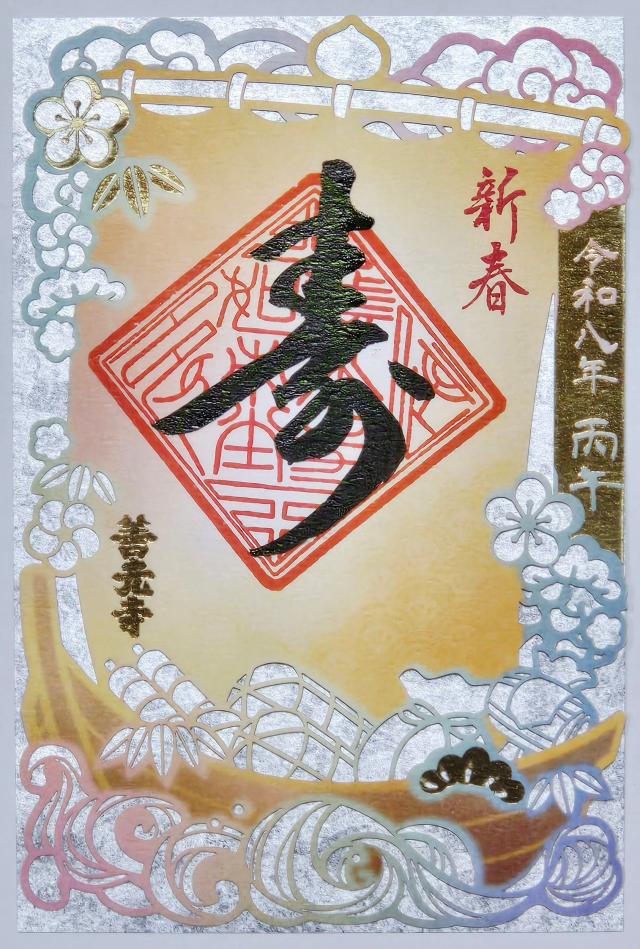 新春
令和八年 丙午
寿
善光寺